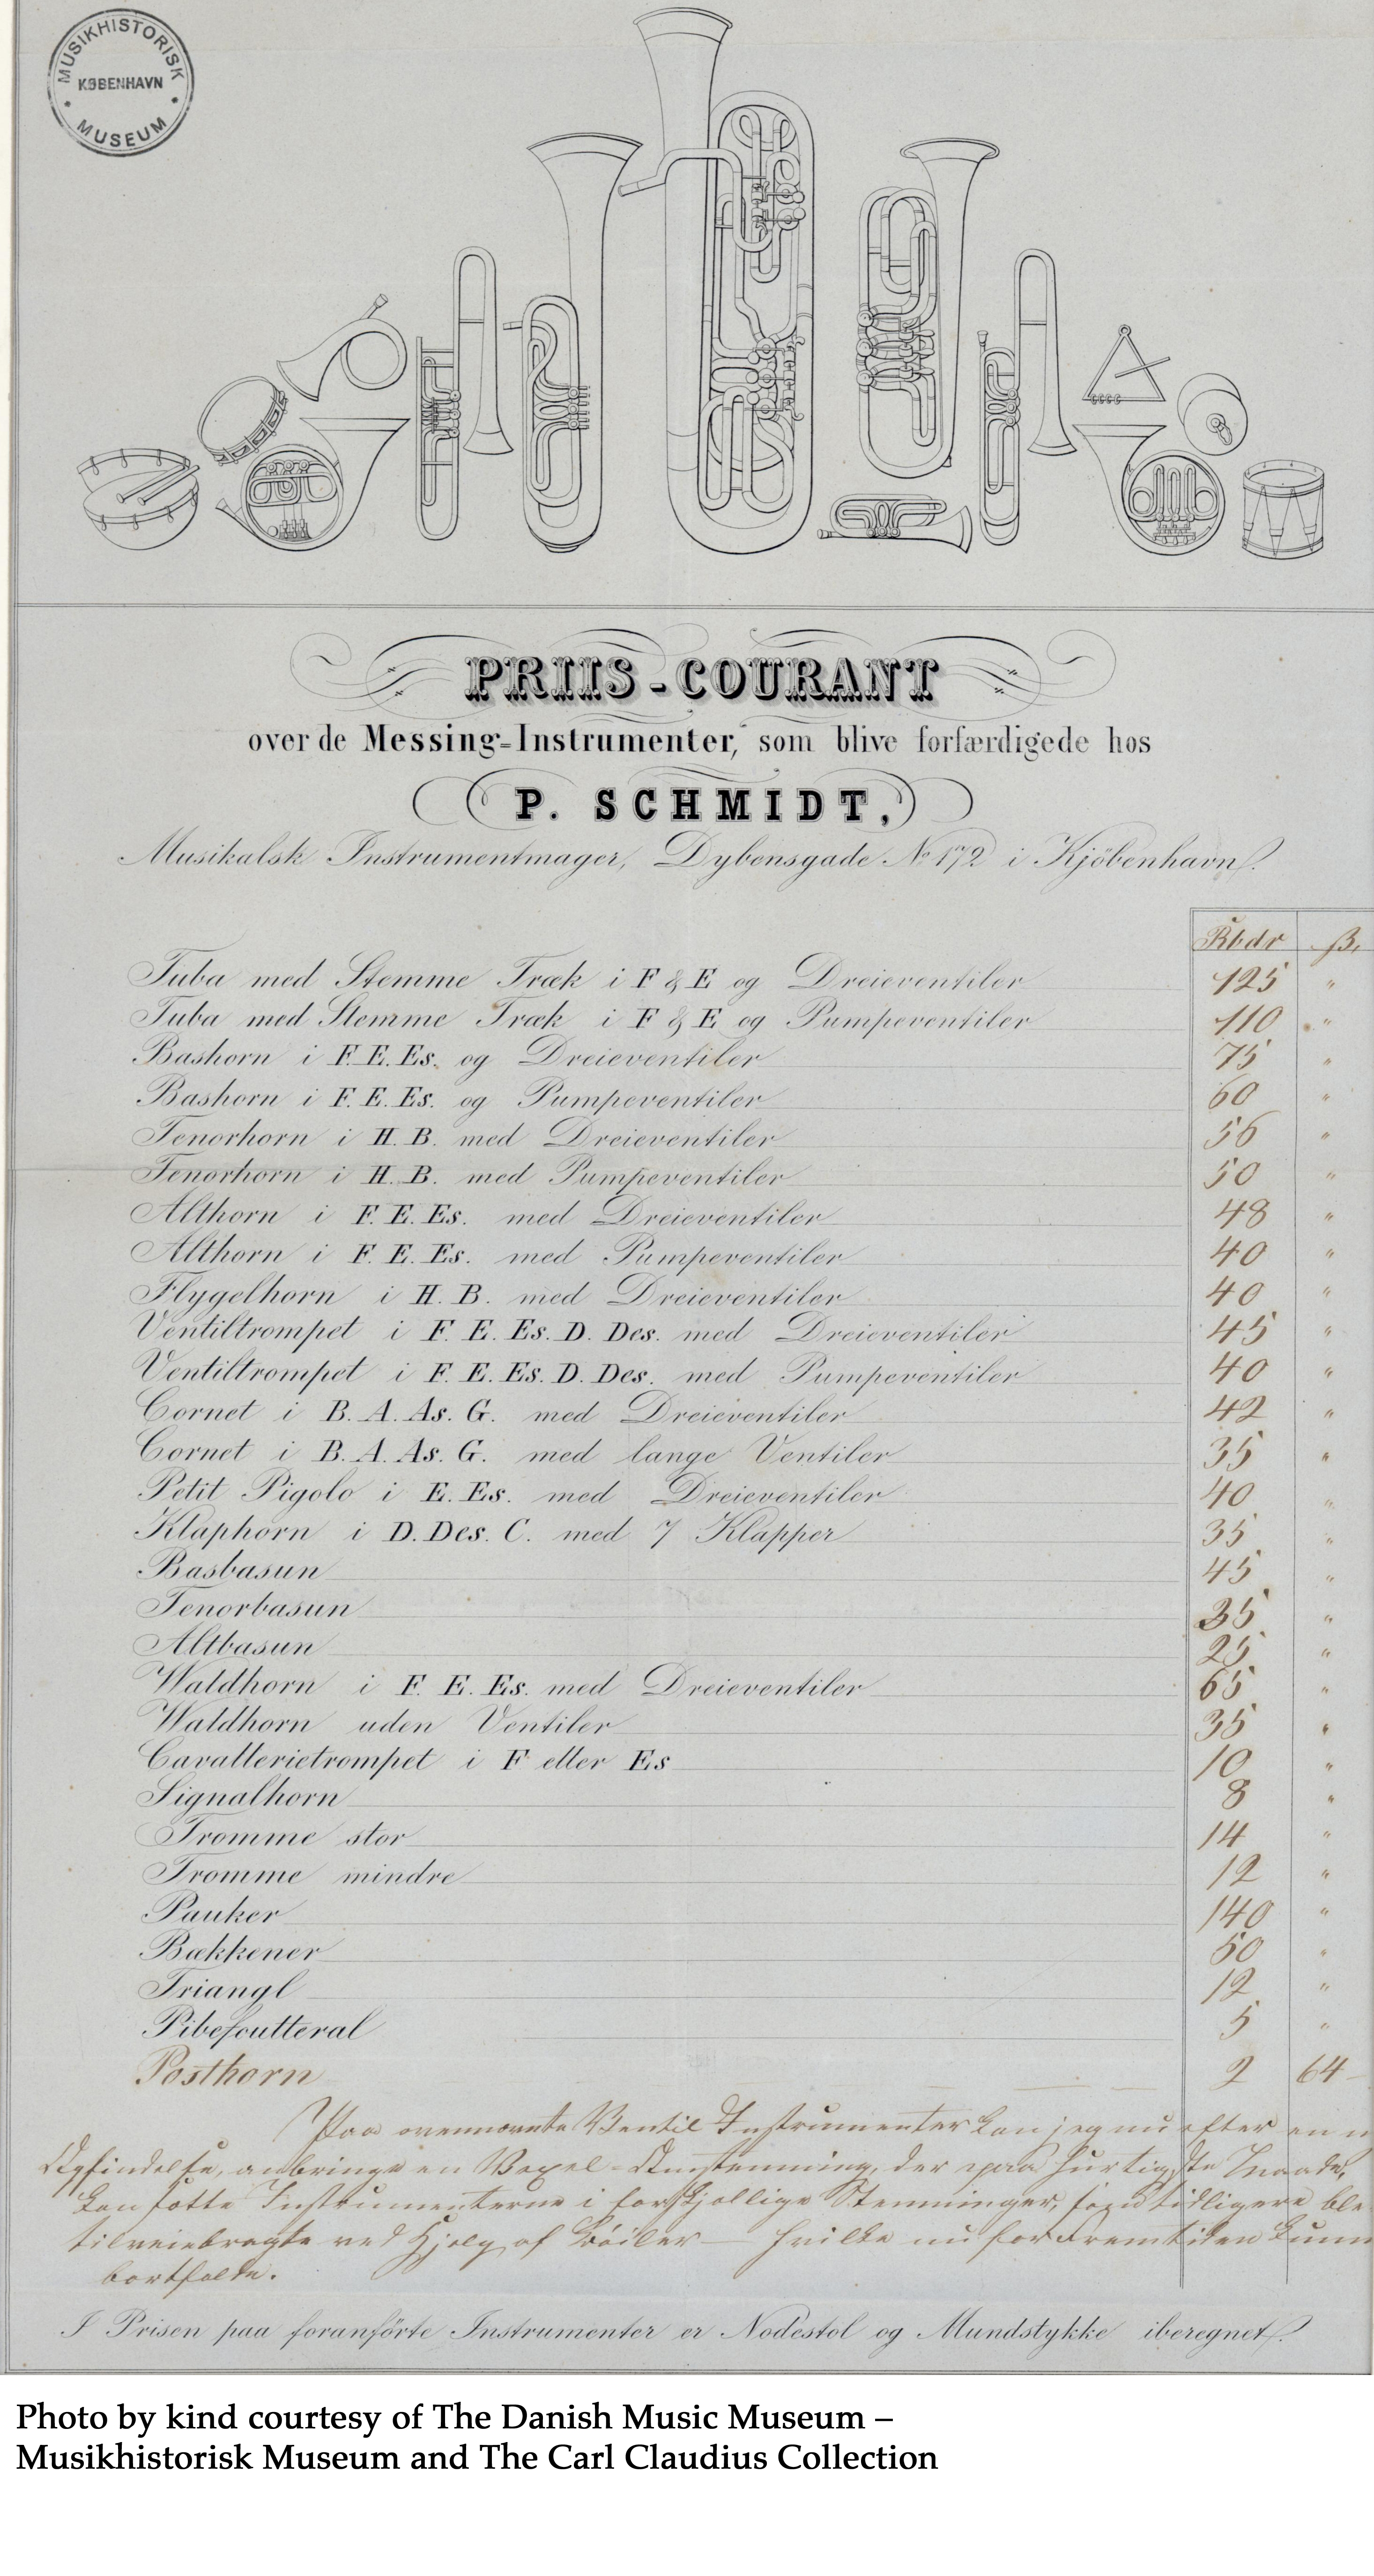 MUSIKHISTORISK
KØBENHAVN
MUSEUM
PRIIS-COURANT
over de Messing-Instrumenter, som blive forfærdigede hos
P. SCHMIDT,
Musikalsk Instrumentmager, Dybensgade No 172 i Kjöbenhavn.
Rbdr ß.
Tuba med Stemme Træk i F & E og Dreieventiler 125 "
Tuba med Stemme Træk i F & E og Pumpeventiler 110 "
Bashorn i F. E. Es. og Dreieventiler 75 "
Bashorn i F. E. Es. og Pumpeventiler 60 "
Tenorhorn i H. B. med Dreieventiler 56 "
Tenorhorn i H. B. med Pumpeventiler 50 "
Althorn i F. E. Es. med Dreieventiler 48 "
Althorn i F. E. Es. med Pumpeventiler 40 "
Flygelhorn i H. B. med Dreieventiler 40 "
Ventiltrompet i F. E. Es. D. Des. med Dreieventiler 45 "
Ventiltrompet i F. E. Es. D. Des. med Pumpeventiler 40 "
Cornet i B. A. As. G. med Dreieventiler 42 "
Cornet i B. A. As. G. med lange Ventiler 35 "
Petit Pigolo i E. Es. med Dreieventiler 40 "
Klaphorn i D. Des. C. med 7 Klapper 35 "
Basbasun 45 "
Tenorbasun 35 "
Altbasun 25 "
Waldhorn i F. E. Es. med Dreieventiler 65 "
Waldhorn uden Ventiler 35 "
Cavallerietrompet i F eller Es 10 "
Signalhorn 8 "
Tromme stor 14 "
Tromme mindre 12 "
Pauker 140 "
Bækkener 50 "
Triangl 12 "
Pibefoutteral 5 "
Posthorn 2 64
Paa ovennævnte Ventil Instrumenter kan jeg nu efter en n
Opfindelse, anbringe en Vexel-Omstemning, der paa hurtigste Maade,
kan sætte Instrumenterne i forskjellige Stemninger, som tidligere ble
tilveiebragte ved Hjelp af Böiler — hvilke nu for Fremtiden kunn
bortfalde.
I Prisen paa foranförte Instrumenter er Nodestol og Mundstykke iberegnet.
Photo by kind courtesy of The Danish Music Museum –
Musikhistorisk Museum and The Carl Claudius Collection